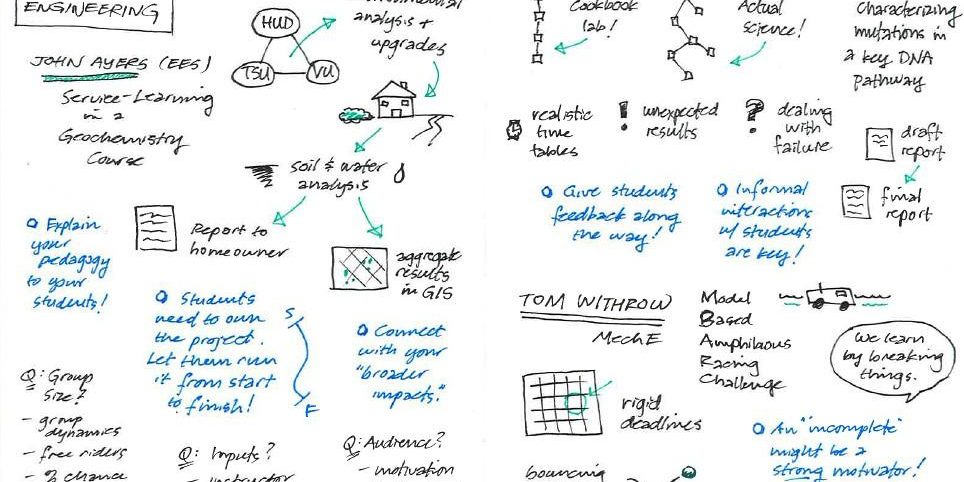 ENGINEERING
JOHN AYERS (EES)
Service-Learning
in a
Geochemistry
Course
HUD
TSU
VU
analysis +
upgrades
soil & water
analysis
Report to
homeowner
aggregate
results
in GIS
Explain
your
pedagogy
to your
students!
Students
need to own
the project.
Let them run
it from start
to finish!
S
F
Connect
with your
"broader
impacts."
Q: Group
size?
- group
dynamics
- free riders
- % chance
Q: Inputs?
- instructor
Q: Audience?
- motivation
Cookbook
lab!
Actual
science!
characterizing
mutations in
a key DNA
pathway
realistic
time
tables
! unexpected
results
? dealing
with
failure
draft
report
final
report
Give students
feedback along
the way!
Informal
interactions
w/ students
are key!
TOM WITHROW
MechE
Model
Based
Amphibious
Racing
Challenge
We learn
by breaking
things.
rigid
deadlines
An "incomplete"
might be a
strong motivator!
bouncing